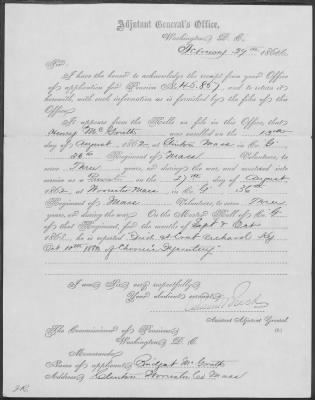 Adjutant General's Office,
Washington, D. C.
February 29th, 1864
Sir:
I have the honor to acknowledge the receipt from your Office
of application for Pension No. 45.857, and to return it
herewith, with such information as is furnished by the files of this
Office.
It appears from the Rolls on file in this Office, that
Henry Mc Grath was enrolled on the 13th
day of August, 1862, at Clinton Mass in Co. G.
36th Regiment of Mass Volunteers, to serve
Three years, or during the war, and mustered into
service as a Private on the 27th day of August
1862, at Worcester Mass in Co. G. 36th
Regiment of Mass Volunteers, to serve Three
years, or during the war. On the Muster Roll of Co. G.
of that Regiment, for the months of Sept & Oct
186 , he is reported "Died at Richard Ky
Oct 10th 1863 of Chronic"
I am, Sir, very respectfully,
Your obedient servant,
Assistant Adjutant General.
The Commissioner of Pensions,
Washington, D. C.
Memoranda:
Name of applicant, Bridget Mc Grath
Address, Clinton Worcester Co Mass